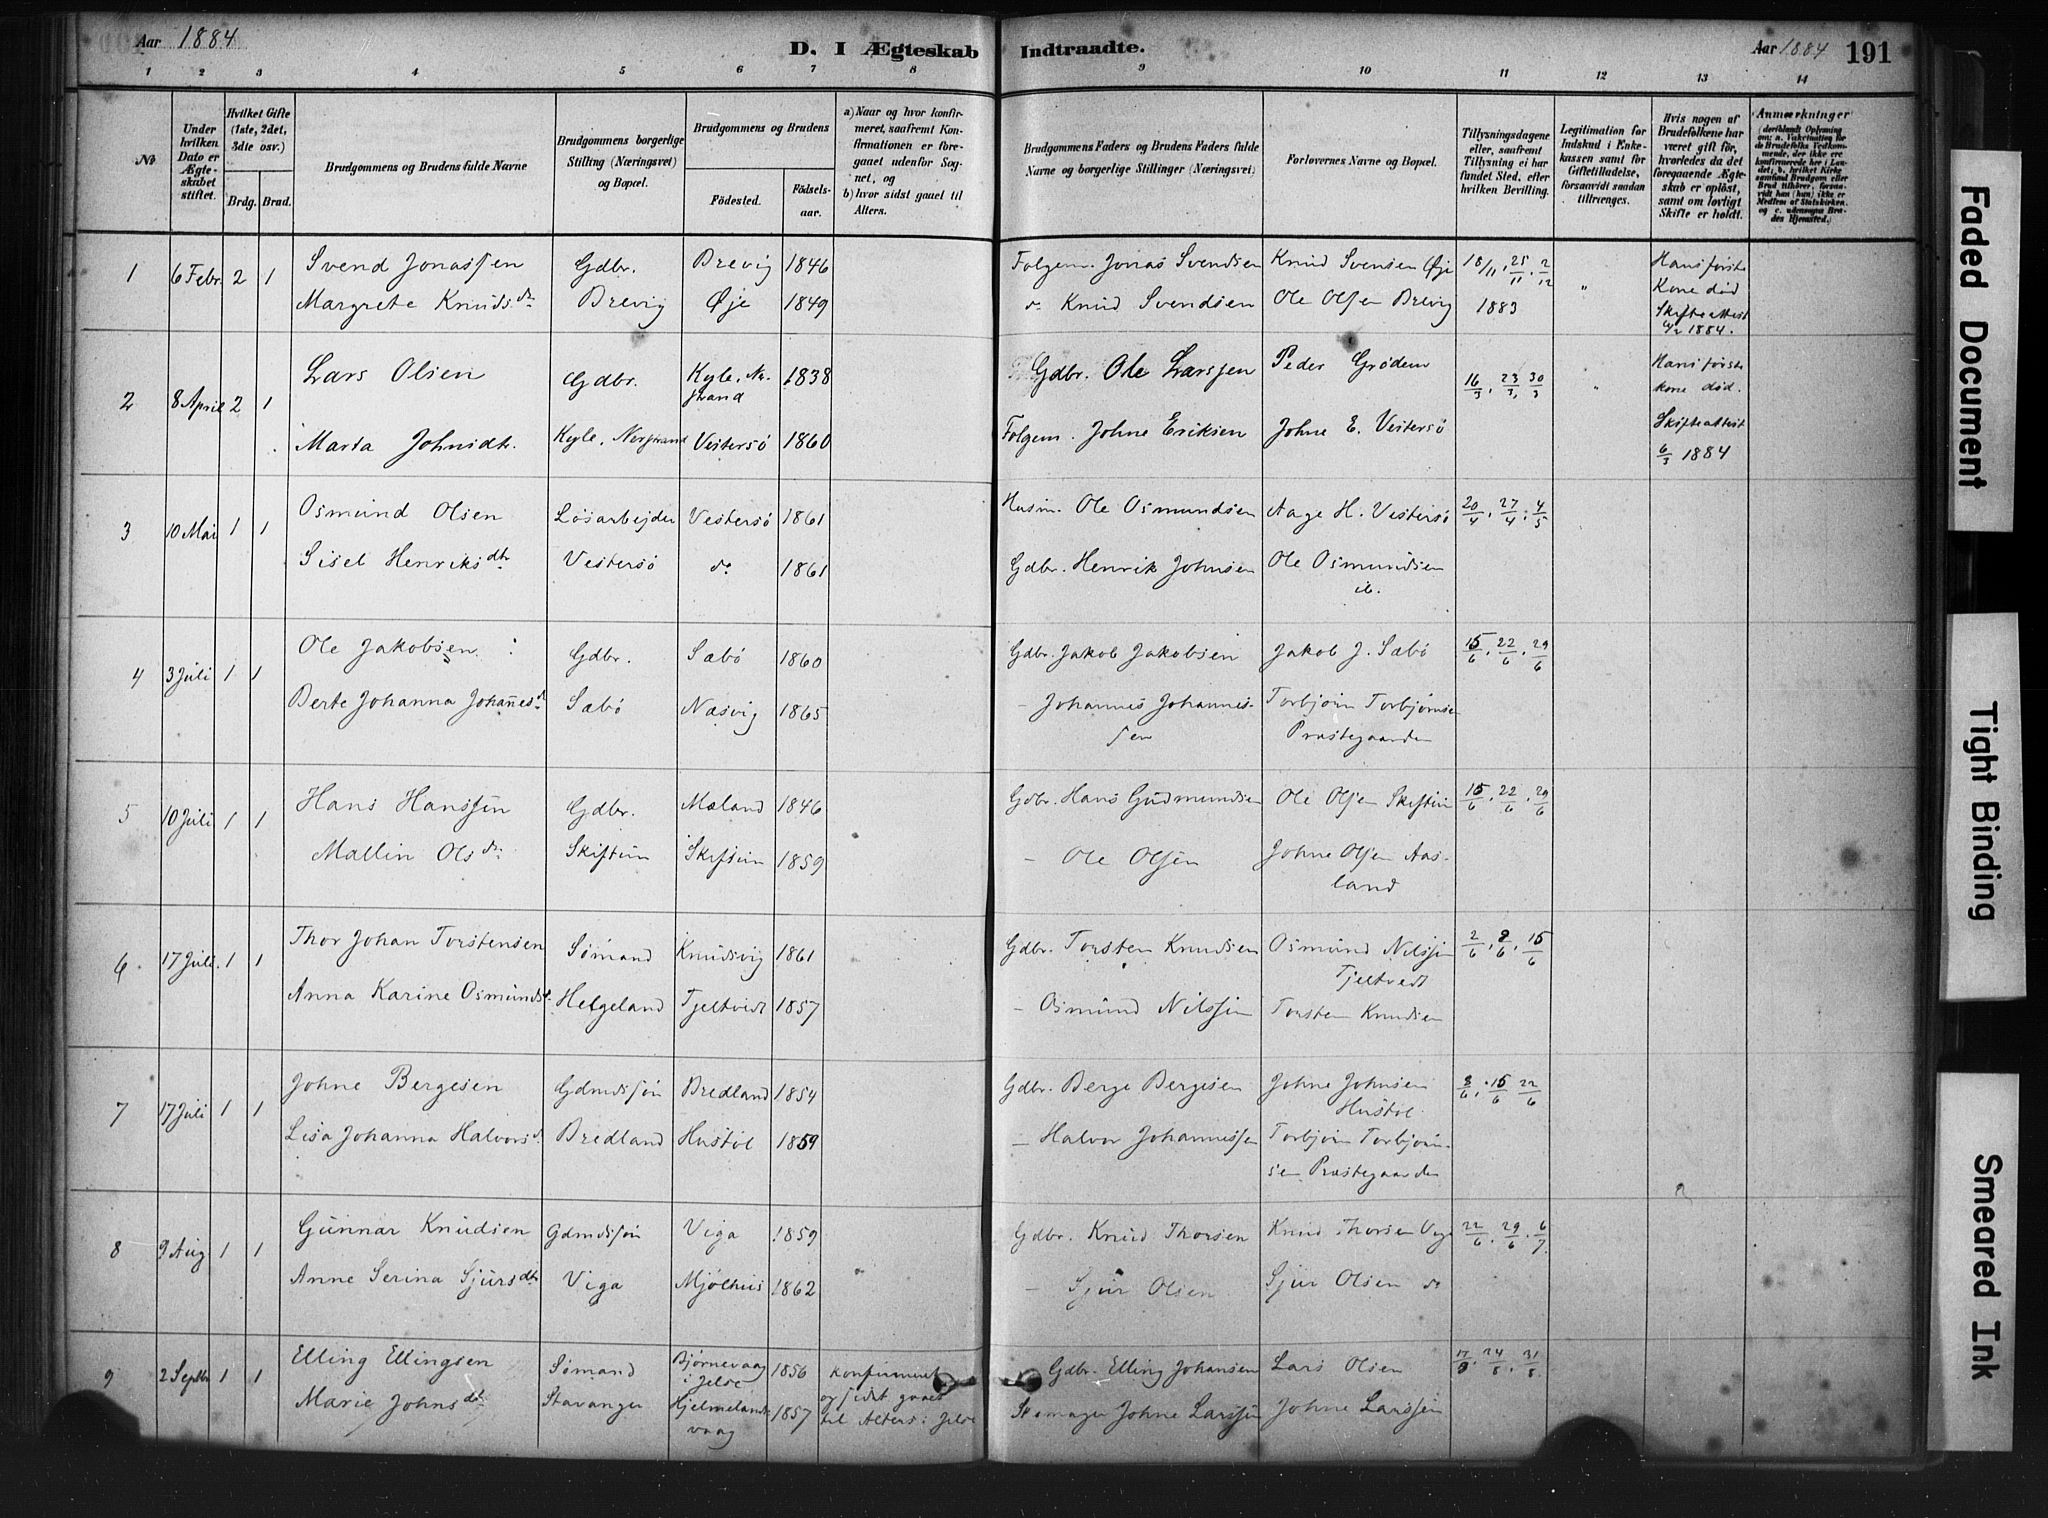 Aar 1884
D. I Ægteskab Indtraadte.
Aar 1884 191
1 2 3 4 5 6 7 8 9 10 11 12 13 14
No
Under hvilken Dato er Ægteskabet stiftet.
Hvilket Gifte (1ste, 2det, 3die osv.)
Brdg. Brud.
Brudgommens og Brudens fulde Navne
Brudgommens borgerlige Stilling (Næringsvei) og Bopæl.
Brudgommens og Brudens
Födested. Födselsaar.
a) Naar og hvor konfirmeret, saafremt Konfirmationen er foregaaet udenfor Sognet, og
b) hvor sidst gaaet til Alters.
Brudgommens Faders og Brudens Faders fulde Navne og borgerlige Stillinger (Næringsvei)
Forlovernes Navne og Bopæl.
Tillysningsdagene eller, saafremt Tillysning ei har fundet Sted, efter hvilken Bevilling.
Legitimation for Indskud i Enkekassen samt for Giftetilladelse, forsaavidt saadan tiltrænges.
Hvis nogen af Brudefolkene har været gift för, hvorledes da det foregaaende Ægteskab er oplöst, samt om lovligt Skifte er holdt.
Anmærkninger
(deriblandt Oplysning om: a. Vakcination for de Brudefolks Vedkommende, der ikke ere konfirmerede her i Landet; b. hvilket Kirkesamfund Brudgom eller Brud tilhörer, forsaavidt han (hun) ikke er Medlem af Statskirken. og c. udensogns Brudes Hjemsted.)
1 6 Febr. 2 1 Svend Jonassen Gdbr. Brevig 1846 Folgem. Jonas Svendsen Knud Svensen Øje 18/11. 25/11. 2/12 " Hans første
Margrete Knudsdr. Brevig Øje 1849 do. Knud Svendsen Ole Olsen Brevig 1883 Kone død
Skifteattest
1884.
2 8 April 2 1 Lars Olsen Gdbr. Kyle, Nerstrand 1838 Gdbr. Ole Larssen Peder Grødem 16/3. 23/3. 30/3 " Hans første
kone død.
Marta Johnsdtr. Kyle, Nerstrand Vestersø 1860 Folgem. Johne Eriksen Johne E. Vestersø Skifteattest
6/3 1884
3 10 Mai 1 1 Osmund Olsen Løsarbejder Vestersø 1861 Husm. Ole Osmundsen Aage H. Vestersø 20/4. 27/4. 4/5
Sisel Henriksdtr. Vestersø do. 1861 Gdbr. Henrik Johnsen Ole Osmundsen
ib.
4 3 Juli 1 1 Ole Jakobsen Gdbr. Sæbø 1860 Gdbr. Jakob Jakobsen Jakob J. Sæbø 15/6. 22/6. 29/6
Berte Johanna Johañesd. Sæbø Næsvig 1865 – Johannes Johannessen Torbjørn Torbjørnsen
Præstegaarden
5 10 Juli 1 1 Hans Hanssen Gdbr. Mæland 1846 Gdbr. Hans Gudmundsen Ole Olsen Skiftun 15/6. 22/6. 29/6
Mallin Olsdr. Skiftun Skiftun 1859 – Ole Olsen Johne Olsen Aasland
6 17 Juli. 1 1 Thor Johan Torstensen Sømand Knudsvig 1861 Gdbr. Torsten Knudsen Osmund Nilssen 2/6. 8/6. 15/6
Tjeltvedt
Anna Karine Osmundsd. Helgeland Tjeltvedt 1857 – Osmund Nilssen Torsten Knudsen
7 17 Juli 1 1 Johne Bergesen Gdmdssøn Bredland 1854 Gdbr. Berge Bergesen Johne Johnsen 8/6. 15/6 22/6
Hustøl
Lisa Johanna Halvorsd. Bredland Hustøl 1859 – Halvor Johannessen Torbjørn Torbjørnsen Præstegaarden
8 9 Aug 1 1 Gunnar Knudsen Gdmdssøn Viga 1859 Gdbr. Knud Thorsen Knud Thorsen Viga 22/6. 29/6. 6/7.
Anne Serina Sjursdtr. Viga Mjølhus 1862 – Sjur Olsen Sjur Olsen do
9 2 Septbr 1 1 Elling Ellingsen Sømand Bjørnevaag i Jelse 1856 konfirmeret Gdbr. Elling Johansen Lars Olsen 17/8. 24/8. 31/8.
Marie Johnsdtr. Stavanger Hjelmelandsvaag 1857 og sidst gaaet til Alters i Jelse Johne Larssen Johne Larssen
Faded Document
Tight Binding
Smeared Ink